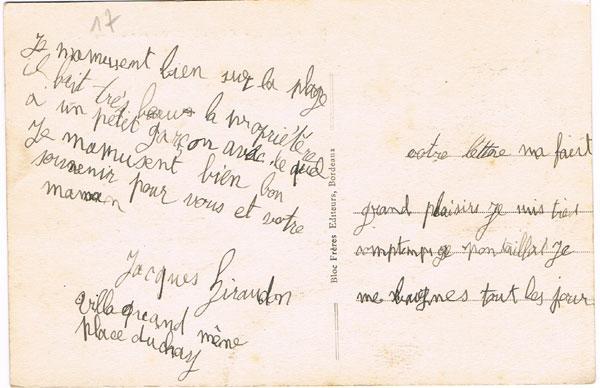 17
Je mamusent bien sur la plage
il bait très beau la proprietère
a un petit garçon avec le quel
Je mamusent bien bon
souvenir pour vous et votre
maman
Jacques Giraudon
villa quand même
place du
Bloc Frères Editeurs, Bordeaux
votre lettre ma fait
grand plaisirs je suis tres
Je
me tout les jour